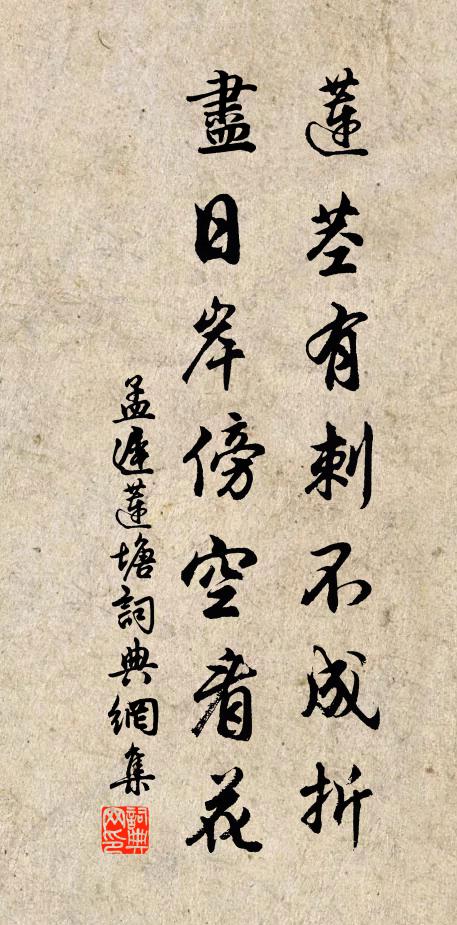 蓮莖有刺不成折
盡日岸傍空看花
孟遲蓮塘詞典網集
詞典網印